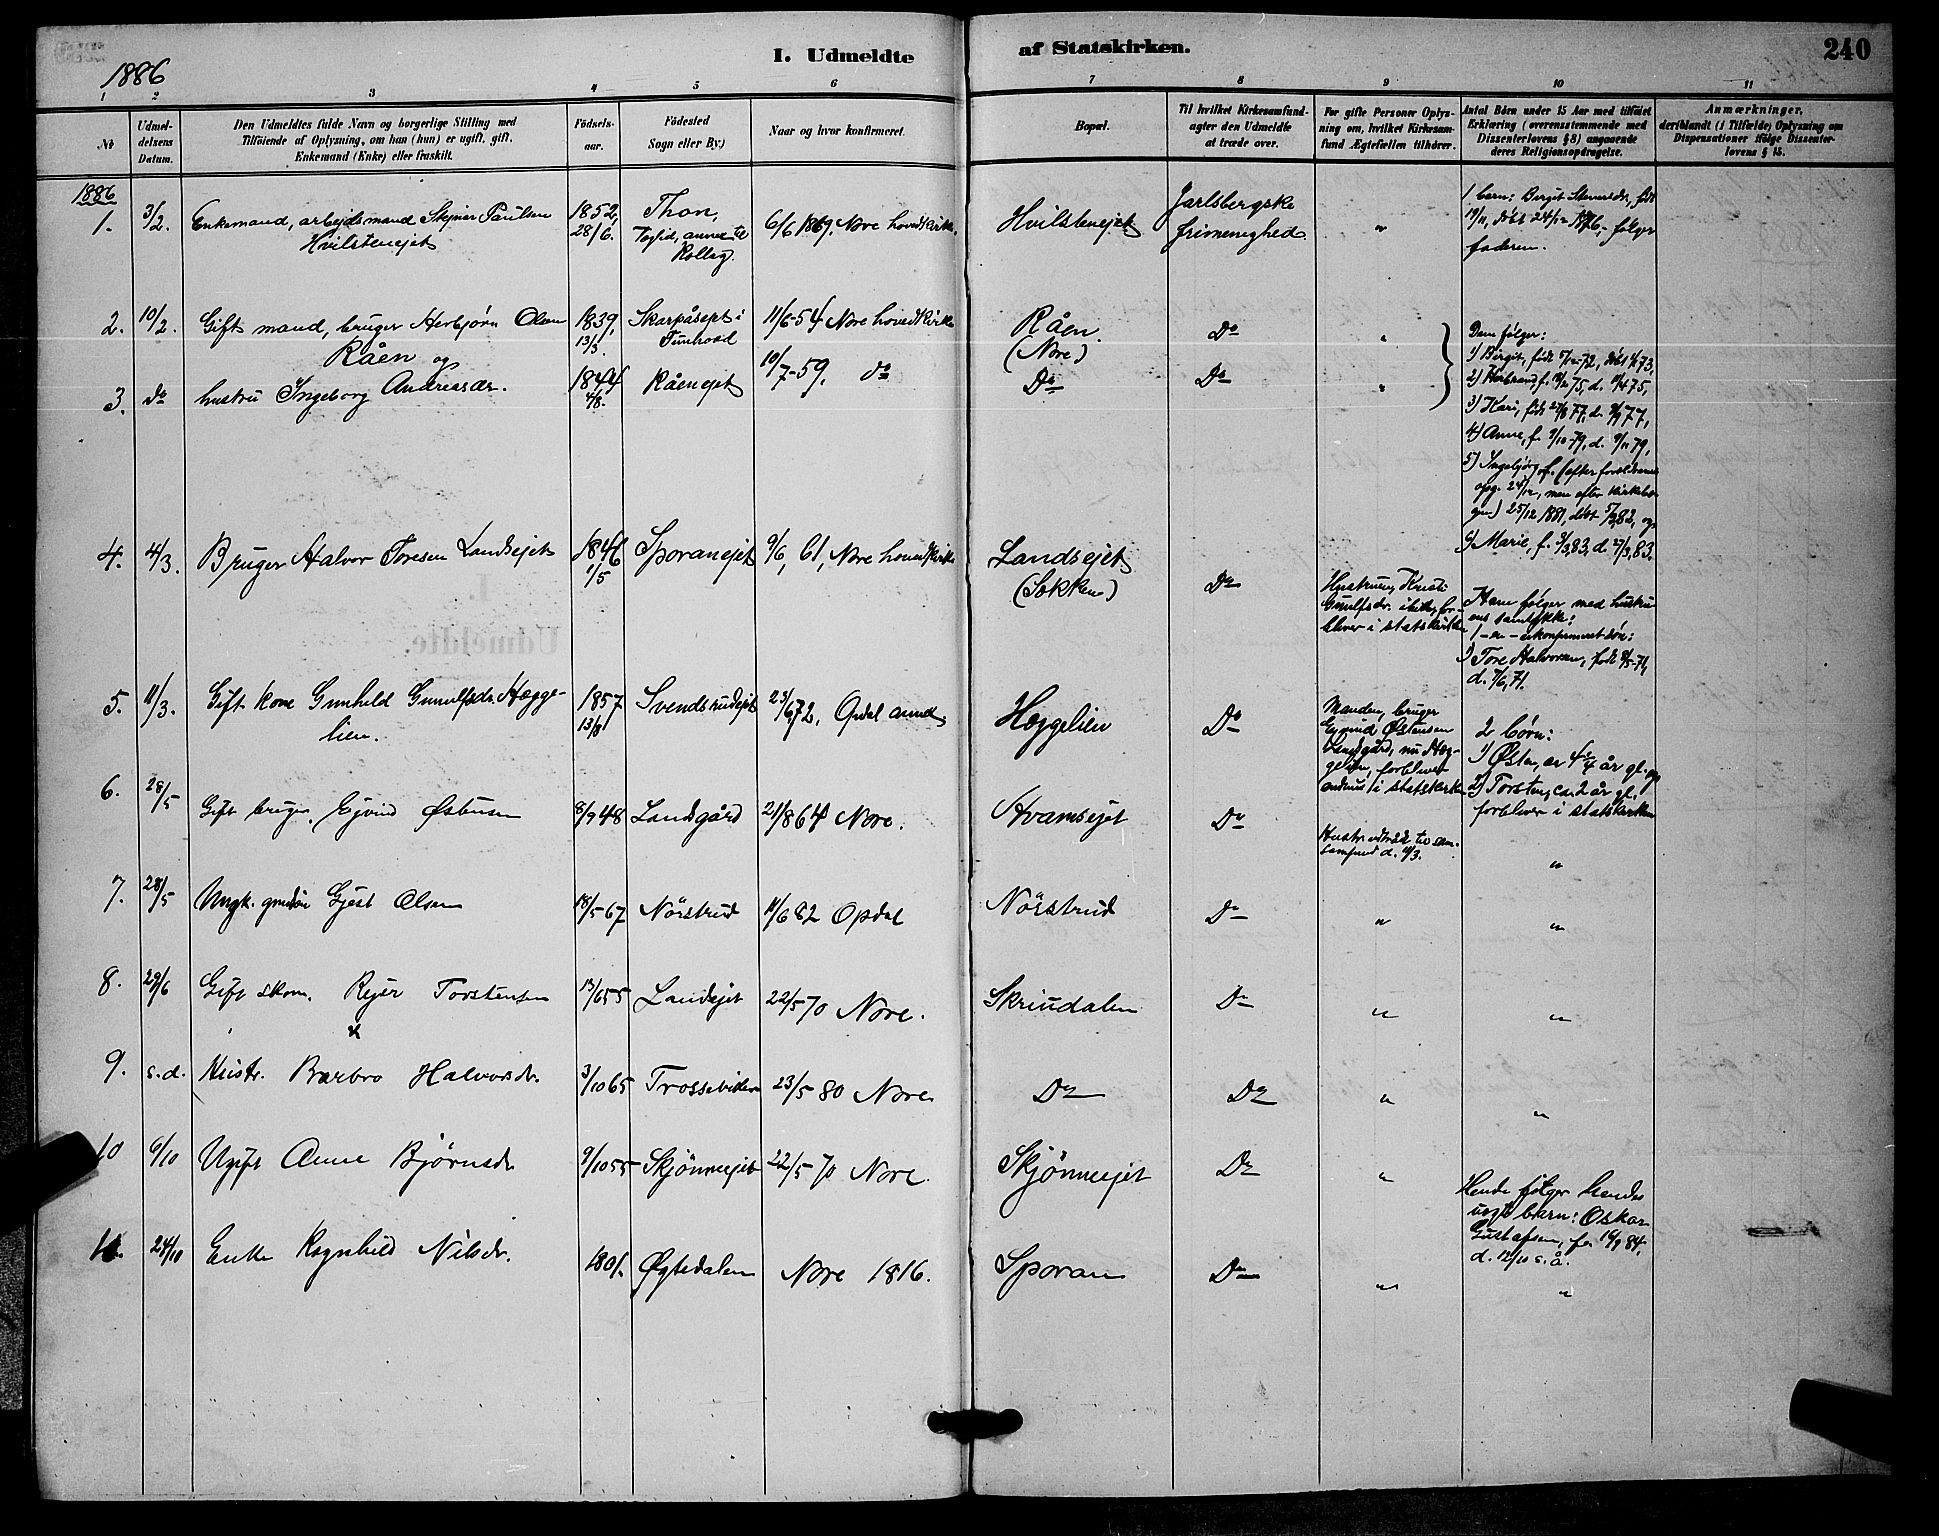 I. Udmeldte af Statskirken. 240
1886
1 2 3 4 5 6 7 8 9 10 11
Nt
Udmel-
delsens
Datum.
Den Udmeldtes fulde Navn og borgerlige Stilling med
Tilföiende af Oplysning, om han (hun) er ugift, gift,
Enkemand (Enke) eller fraskilt.
Födsels-
aar.
Födested
Sogn eller By.)
Naar og hvor konfirmeret.
Bopæl.
Til hvilket Kirkesamfund-
agter den Udmeldte
at træde over.
For gifte Personer Oplys-
ning om, hvilket Kirkesam-
fund Ægtefællen tilhörer.
Antal Börn under 15 Aar med tilföiet
Erklæring (overensstemmende med
Dissenterlovens § 8) angaaende
deres Religionsopdragelse.
Anmærkninger,
deriblandt (i Tilfælde) Oplysning om
Dispensationer ifölge Dissenter-
lovens § 15.
1886
1. 3/2. Enkemand, arbejdsmand Paulsen
Hvilstenejet
1852,
28/6.
Thon,
annex til
Rollag.
6/6 1869. Nore hovedkirke.
Hvilstenejet
Jarlsbergske
frimenighed.
"
1 barn: Birgit født
19/11, døbt 24/12 1876, følger
faderen.
2. 10/2. Gift mand, bruger Herbjørn Olsen
Råen og
1839,
13/3.
Skarpåsejet i
11/6-54 Nore hovedkirke
Råen.
(Nore)
Do
"
3. do hustru Ingeborg Andreasdr.
1844
4/8.
Råenejet
10/7-59. do
Do
Do
"
Dem følger:
1) Birgit, født
2) 75, d. 75,
3) Kari, født 77, d. 77,
4) Anne, f. 9/10-79, d. 9/11 79,
5) Ingebjørg, f. (efter forældrenes
opg. 24/12, men efter kirkebo-
gen) 25/12 1881, døbt 82, og
6) Marie, f. 3/3 83, d. 27/3 83.
4. 4/3. Bruger Halvor Toresen Landsejet
1846
1/5
Sporanejet
9/6, 61, Nore hovedkirke
Landsejet
Do
Hustruen, Kristi
Gunulfsdr. for-
bliver i statskirken
Ham følger med hustru
ens samtykke:
1 - en - ukonfirmeret søn:
1) Tore Halvorsen, født 71,
d. 7/6, 71.
5. 11/3. Gift kone Gunhild Gunulfsdr. Hægge-
lien.
1857
13/8
Svendsrudejet
23/6 72, Opdal annex.
Hæggelien
Do
Manden, bruger
Ejvind Østensen
Landsgård, nu Hæg-
gelien, forbliver
i statskirken
2 børn:
1) Østen, år gl. og
2) Torsten, ca. 2 år gl.,
forbliver i statskirken
6. 28/5 Gift bruger Ejvind Østensen
8/9 48 Landsgård 21/8 64 Nore.
Hvamsejet
Do
Hustr. udtrådt til sam.
samfund d. 11/3.
"
7. 28/5 Ungk. Gjest Olsen
18/5-67 Nörstrud 11/6 82 Opdal
Nörstrud
Do
"
"
8. 29/6 Gift skom. Rejer Torstensen
13/6 55 Landsejet 22/5 70 Nore.
Skriudalen
Do
"
"
9. s.d. Hustr. Barbro Halvorsdr.
3/10 65 23/5 80 Nore
Do
Do
"
"
10 6/10 Ugift Anne Bjørnsdr
9/10 55 Skjönneejet 22/5 70 Nore.
Skjönneejet
Do
"
Hende følger hendes
uægte barn: Oskar
Gustafsen, f. 16/9 84,
d. 12/10 s. å.
11. 24/10 Enke Ragnhild Nilsdr.
1801. Øgtedalen Nore 1816.
Sporan
Do
"
"